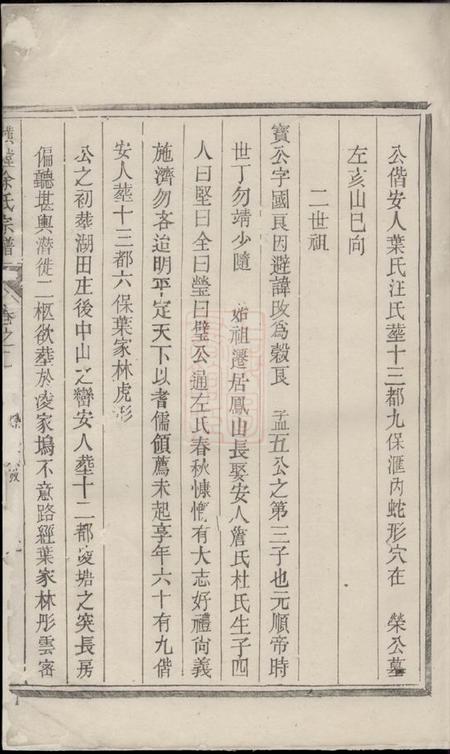 公偕安人葉氏汪氏塟十三都九保滙內蛇形穴在 榮公墓
左亥山巳向
二世祖
寶公字國良因避諱改為榖良 孟五公之第三子也元順帝時
世丁勿靖少隨 始祖遷居鳳山長娶安人詹氏杜氏生子四
人曰堅曰全曰瑩曰璧公通左氏春秋慷慨有大志好禮尙義
施濟勿吝迨明平定天下以耆儒領薦未起享年六十有九偕
安人塟十三都六保葉家林虎形
公之初塟湖田庄後中山之巒安人塟十二都凌塘之突長房
偏聽堪輿潛徙二柩欲塟於凌家塢不意路經葉家林彤雲密
余氏宗譜
卷之